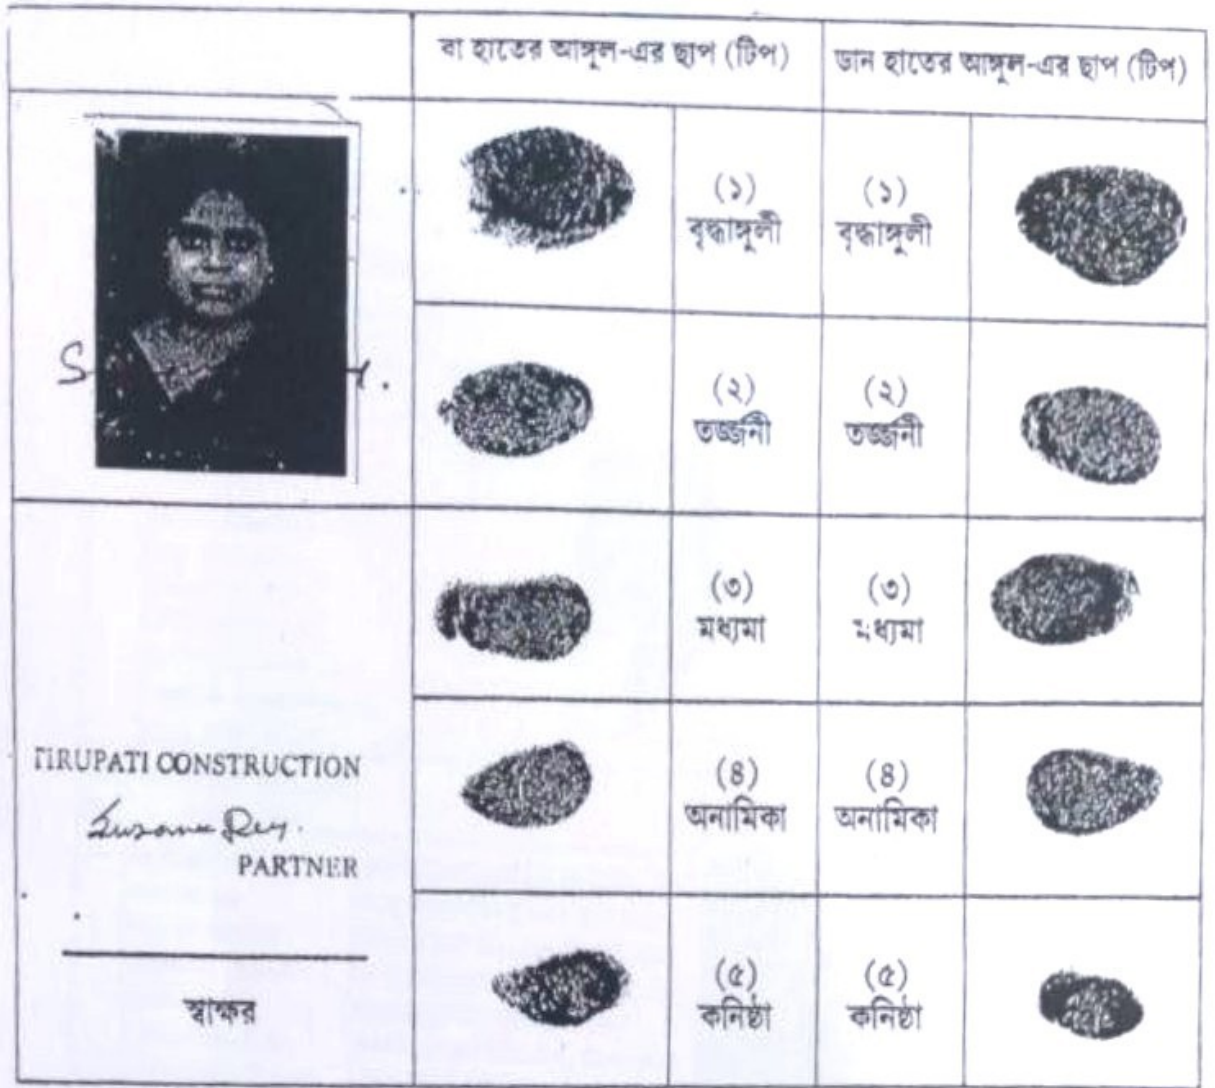 বা হাতের আঙ্গুল-এর ছাপ (টিপ)
ডান হাতের আঙ্গুল-এর ছাপ (টিপ)
(১) (১)
বৃদ্ধাঙ্গুলী বৃদ্ধাঙ্গুলী
S
(২) (২)
তর্জ্জনী তর্জ্জনী
(৩) (৩)
মধ্যমা মধ্যমা
TIRUPATI CONSTRUCTION
Dey.
PARTNER
(৪) (৪)
অনামিকা অনামিকা
স্বাক্ষর
(৫) (৫)
কনিষ্ঠা কনিষ্ঠা